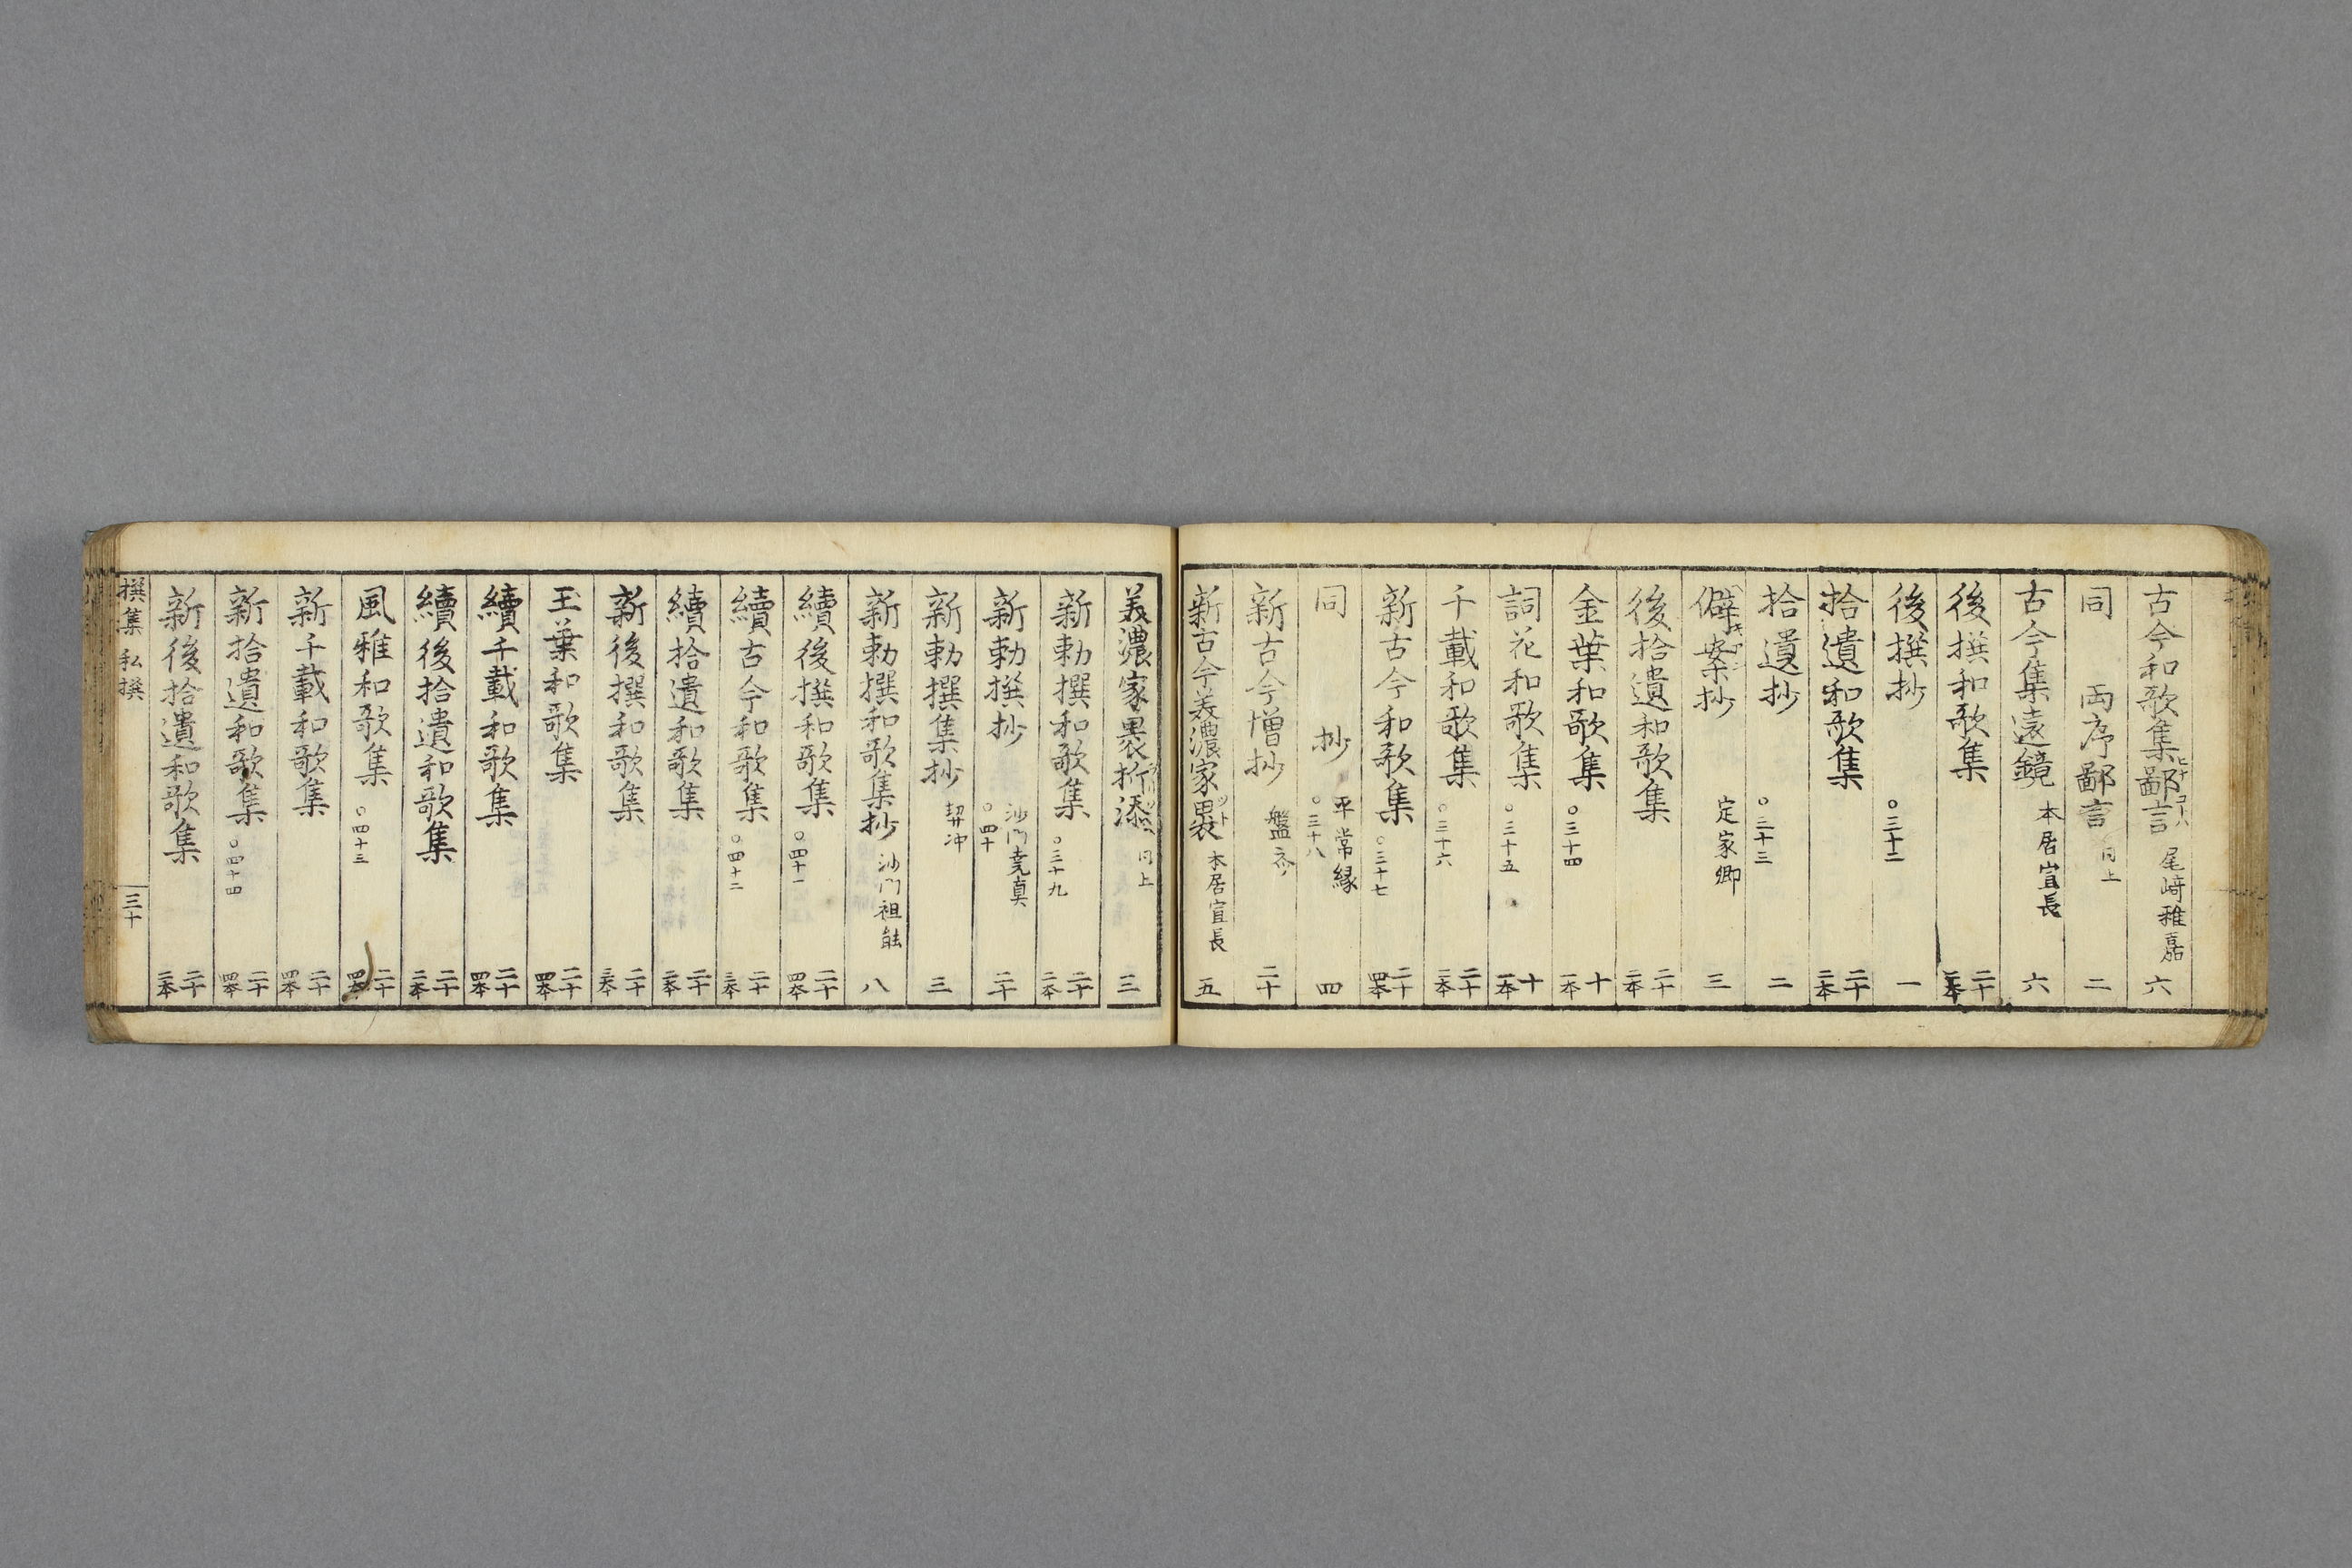 古今和歌集鄙言 ヒナコトバ 尾崎雅嘉 六
同 両序鄙言 同上 二
古今集遠鏡 本居宣長 六
後撰和歌集 二十 二本
後撰抄 ○三十二 一
拾遺和歌集 二十 二本
拾遺抄 ○三十三 二
僻案抄 定家卿 三
後拾遺和歌集 二十 二本
金葉和歌集 ○三十四 十 一本
詞花和歌集 ○三十五 十 一本
千載和歌集 ○三十六 二十 二本
新古今和歌集 ○三十七 二十 四本
同 抄 平常縁 ○三十八 四
新古今増抄 盤斎 二十
新古今美濃家裹 ツト 本居宣長 五
美濃家裹折添 同上 三
新勅撰和歌集 ○三十九 二十 二本
新勅撰抄 沙門尭真 ○四十 二十
新勅撰集抄 契冲 三
新勅撰和歌集抄 沙門祖能 八
續後撰和歌集 ○四十一 二十 四本
續古今和歌集 ○四十二 二十 三本
續拾遺和歌集 二十 二本
新後撰和歌集 二十 三本
玉葉和歌集 二十 四本
續千載和歌集 二十 四本
續後拾遺和歌集 二十 二本
風雅和歌集 ○四十三 二十 四本
新千載和歌集 二十 四本
新拾遺和歌集 ○四十四 二十 四本
新後拾遺和歌集 二十 二本
撰集 私撰 三十